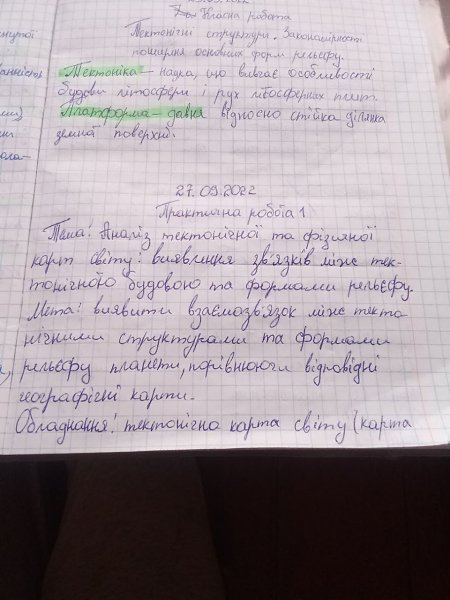 Класна робота
Тектонічні структури. Закономірності
поширня основних форм рельєфу.
Тектоніка — наука, що вивчає особливості
будови літосфери і рух літосферних плит.
Платформа — давня відносно стійка ділянка
земної поверхні.
27.09.2022
Практична робота 1
Тема: Аналіз тектонічної та фізичної
карт світу: виявлення зв'язків між тек-
тонічного будовою та формами рельєфу.
Мета: виявити взаємозв'язок між текто
нічними структурами та формами
рельєфу планети, порівнюючи відповідні
географічні карти.
Обладнання: тектонічна карта світу (карта